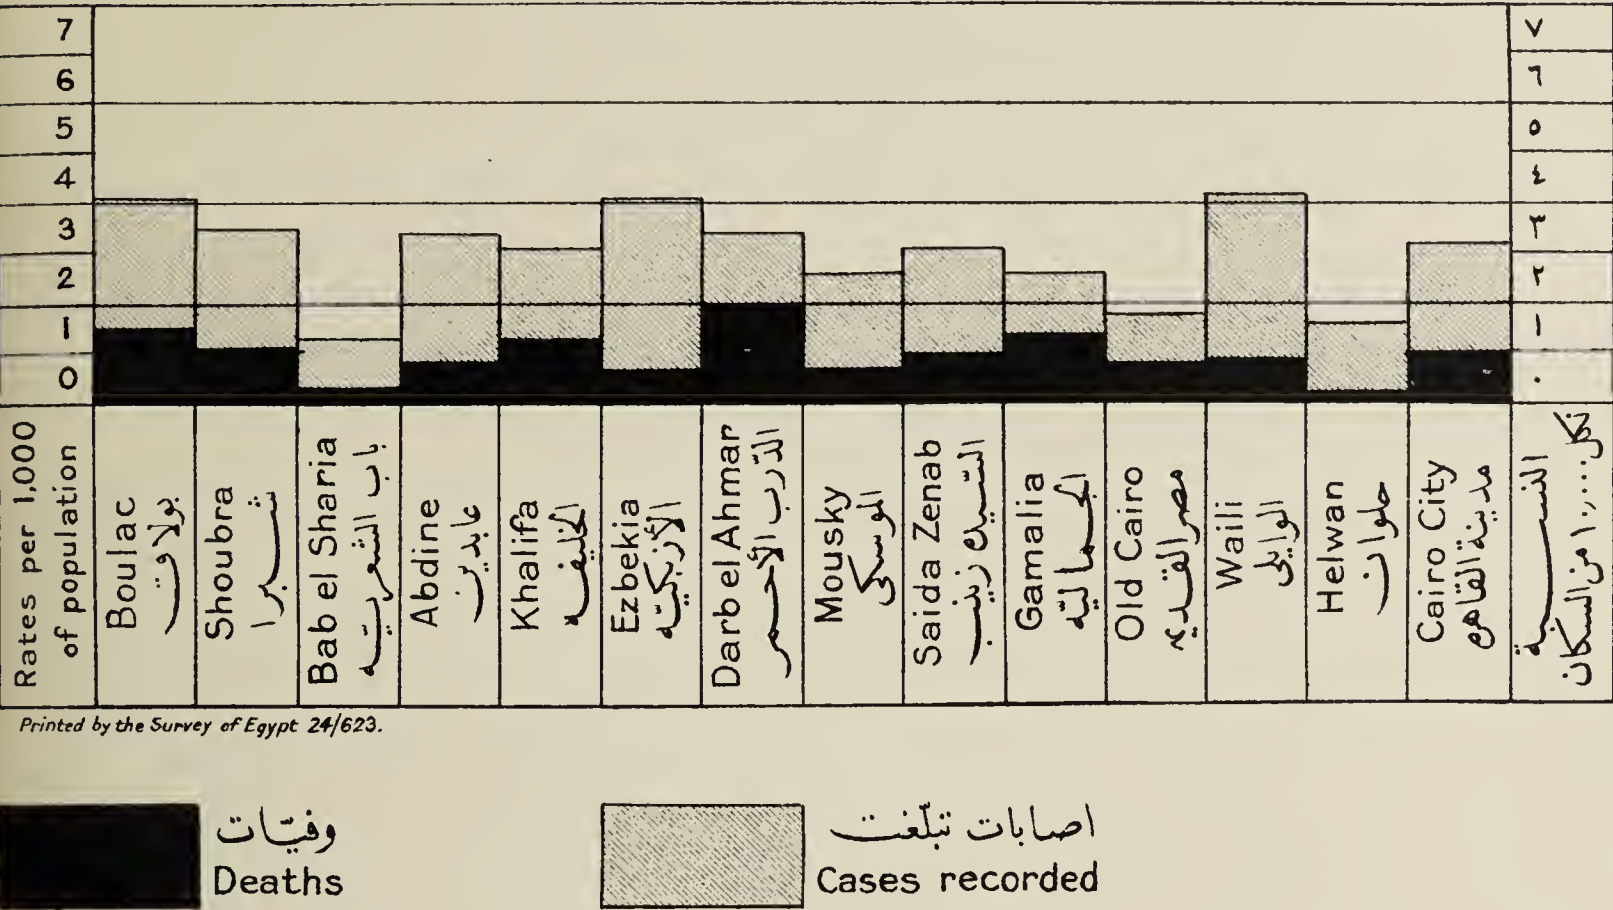 7 ٧
6 ٦
5 ٥
4 ٤
3 ٣
2 ٢
1 ١
0 ٠
Rates per 1,000
of population
Boulac
بولاق
Shoubra
شبرا
Bab el Sharia
باب الشعريه
Abdine
عابدين
Khalifa
الخليفه
Ezbekia
الأزبكيّه
Darb el Ahmar
الدّرب الأحمر
Mousky
الموسكى
Saida Zenab
السّيدة زينب
Gamalia
الجماليّه
Old Cairo
مصر القديمه
Waili
الوايلى
Helwan
حلوان
Cairo City
مدينة القاهرة
النسبة
من السكان
Printed by the Survey of Egypt 24/623.
وفيّات
Deaths
اصابات تبلّغت
Cases recorded